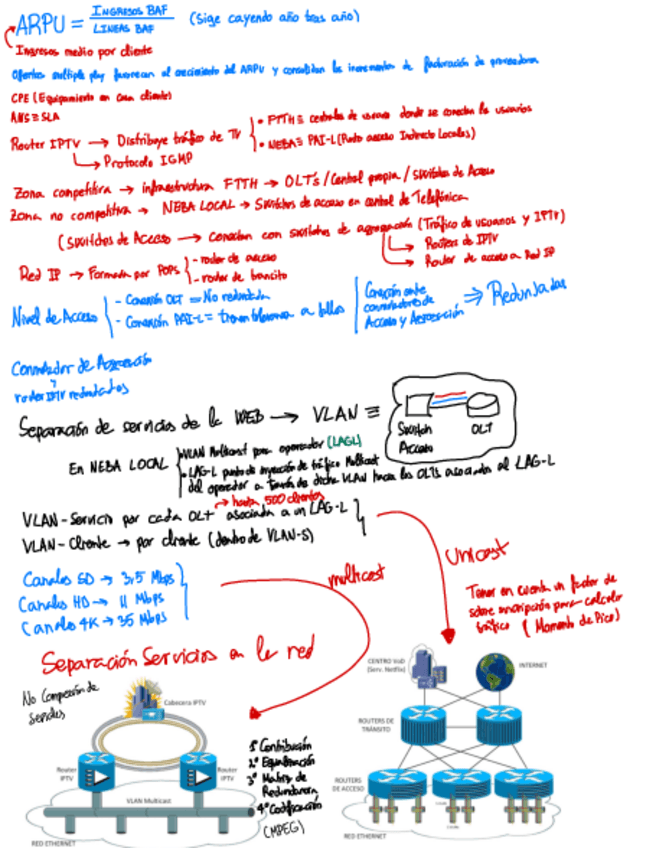 ARPU = INGRESOS BAF / LINEAS BAF (Sige cayendo año tras año)
Ingresos medio por cliente
Ofertas multiple play favorecen al crecimiento del ARPU y consolidan los incrementos de facturación de proveedores
CPE (Equipamiento en casa cliente)
ANS ≡ SLA
Router IPTV → Distribuye tráfico de TV
• FTTH ≡ centrales de usuario donde se conectan los usuarios
• NEBA ≡ PAI-L (Punto acceso Indirecto Locales)
↳ Protocolo IGMP
Zona competitiva → infraestructura FTTH → OLTs / Central propia / switches de Acceso
Zona no competitiva → NEBA LOCAL → Switches de acceso en central de Telefónica
(Switches de Acceso → conectan con switches de agregación (Tráfico de usuarios y IPTV)
→ Routers de IPTV
→ Router de acceso a Red IP
Red IP → Formada por POPS
- router de acceso
- router de transito
Nivel de Acceso
- Conexión OLT = No redundada
- Conexión PAI-L = a fallos
Conexión entre conmutadores de Acceso y Agregación ⇒ Redundadas
Conmutador de Agregación
y
router IPTV redundados
Separación de servicios de la WEB → VLAN ≡
Switch Acceso
OLT
En NEBA LOCAL
• VLAN Multicast para operador (LAGL)
• LAG-L punto de inyección de tráfico Multicast
del operador a través de dicha VLAN hacia los OLTs asociados al LAG-L
→ hasta 500 clientes
VLAN-Servicio por cada OLT asociada a un LAG-L
VLAN-Cliente → por cliente (dentro de VLAN-S)
Canales SD → 3,5 Mbps
Canales HD → 11 Mbps
Canales 4K → 35 Mbps
multicast
Unicast
Tener en cuenta un factor de
sobre suscripción para calculo
tráfico (Momento de Pico)
Separación Servicios en la red
No Compresión de
Señales
Cabecera IPTV
Router IPTV
Router IPTV
VLAN Multicast
RED ETHERNET
1º Contribución
2º Ecualización
3º Matriz de
Redundancia
4º Codificación
(MPEG)
CENTRO VoD
(Serv. Netflix)
INTERNET
ROUTERS DE
TRÁNSITO
ROUTERS
DE ACCESO
RED ETHERNET